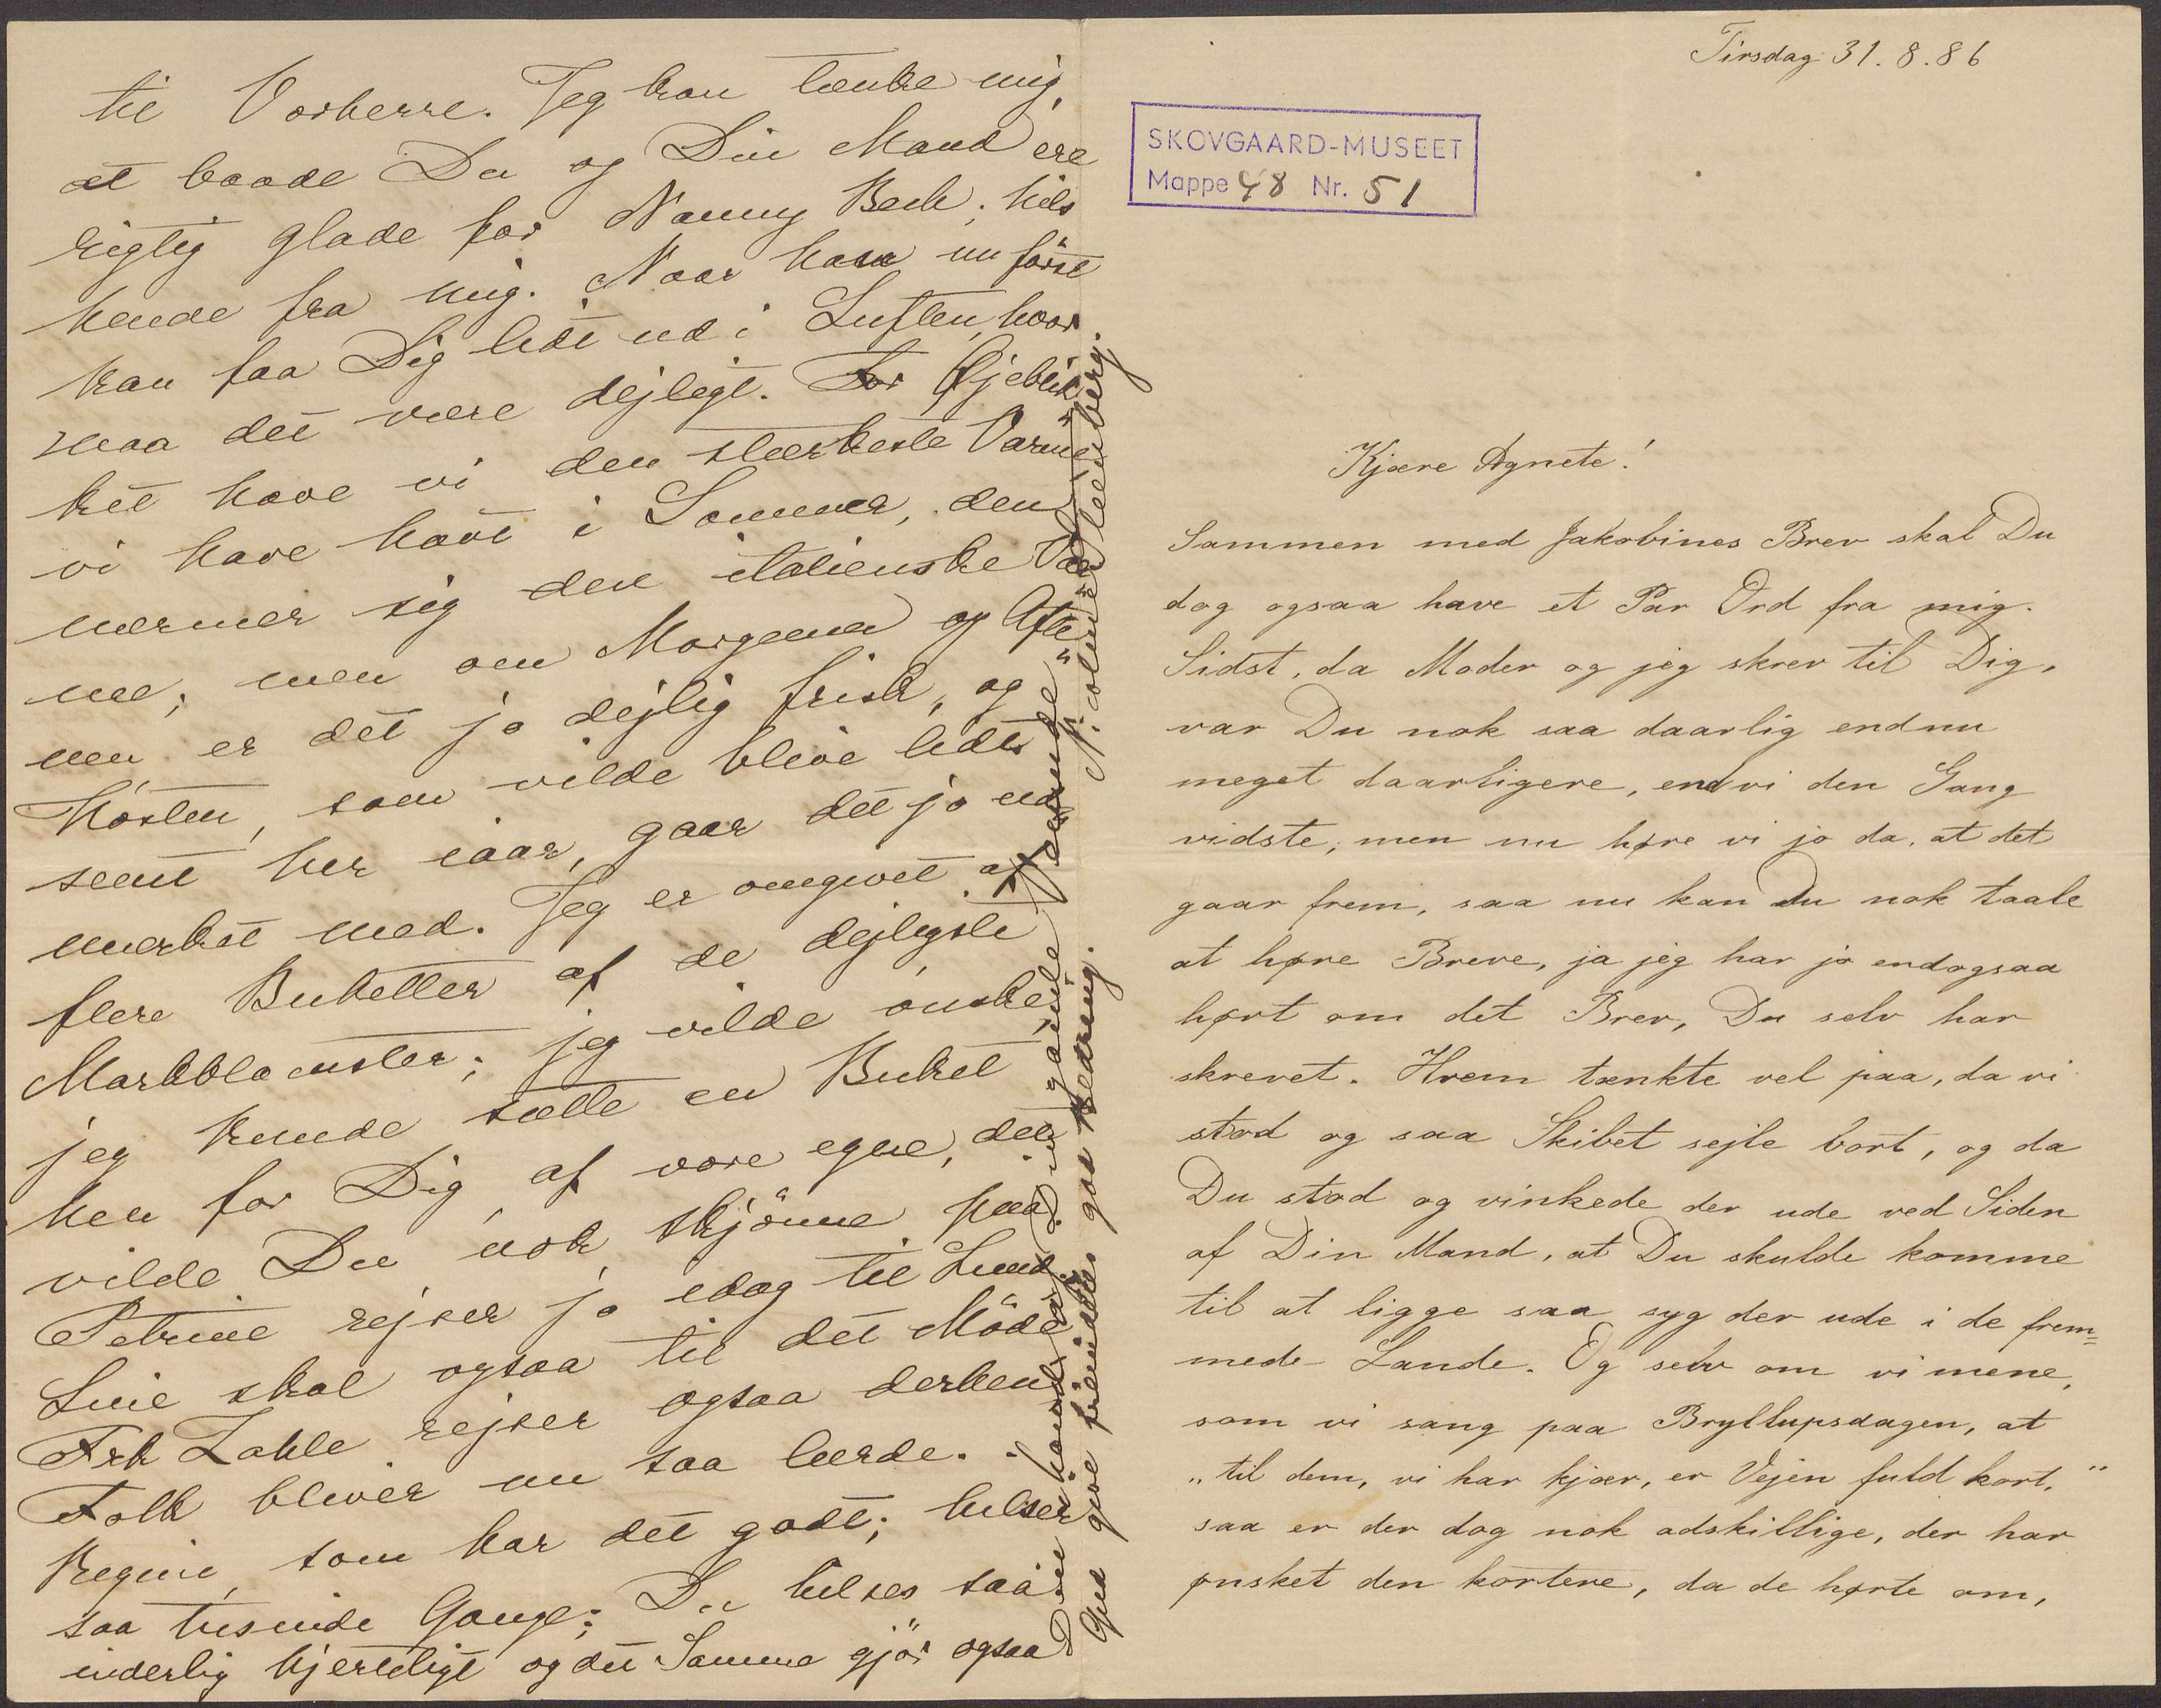 til Vorherre. Jeg kan tænke mig,
at baade Du og Din Mand ere
rigtig glade for Nanny Bech; hils
hende fra mig. Naar han nu først
kan faa Dig lidt ud i Luften, hvor
maa det være dejligt. For Øjeblik
ket have vi den stærkeste Varme
vi have havt i Sommer, den
nærmer sig den italienske Var
me; men om Morgenen og Afte
nen er det jo dejlig frisk, og
Høsten, som vilde blive lidt
seent her iaar, gaar det jo ud
mærket med. Jeg er omgivet af
flere Buketter af de dejligste
Markblomster; jeg vilde ønske
jeg kunde sætte en Buket
hen for Dig af vore egne, det
vilde Du nok skjønne paa.
Petrine rejser jo idag til Lund
Sine skal ogsaa til det Møde
Frk Zahle rejser ogsaa derhen
Folk bliver nu saa lærde.
Regine, som har det godt; hilser
saa tusinde Gange; Du hilses saa
inderlig hjerteligt og det Samme gjør ogsaa
Din Mand fra Din gamle Veninde Nicoline Steenberg.
Gud give fremdeles god Bedring.
Tirsdag 31.8.86
SKOVGAARD-MUSEET
Mappe 48 Nr. 51
Kjære Agnete!
Sammen med Jakobines Brev skal Du
dog ogsaa have et Par Ord fra mig.
Sidst, da Moder og jeg skrev til Dig,
var Du nok saa daarlig endnu
meget daarligere, end vi den Gang
vidste; men nu høre vi jo da, at det
gaar frem, saa nu kan Du nok taale
at høre Breve, ja jeg har jo endogsaa
hørt om det Brev, Du selv har
skrevet. Hvem tænkte vel paa, da vi
stod og saa Skibet sejle bort, og da
Du stod og vinkede der ude ved Siden
af Din Mand, at Du skulde komme
til at ligge saa syg der ude i de frem=
mede Lande. Og selv om vi mene,
som vi sang paa Bryllupsdagen, at
"til dem, vi har kjær, er Vejen fuld kort,"
saa er der dog nok adskillige, der har
ønsket den kortere, da de hørte om,